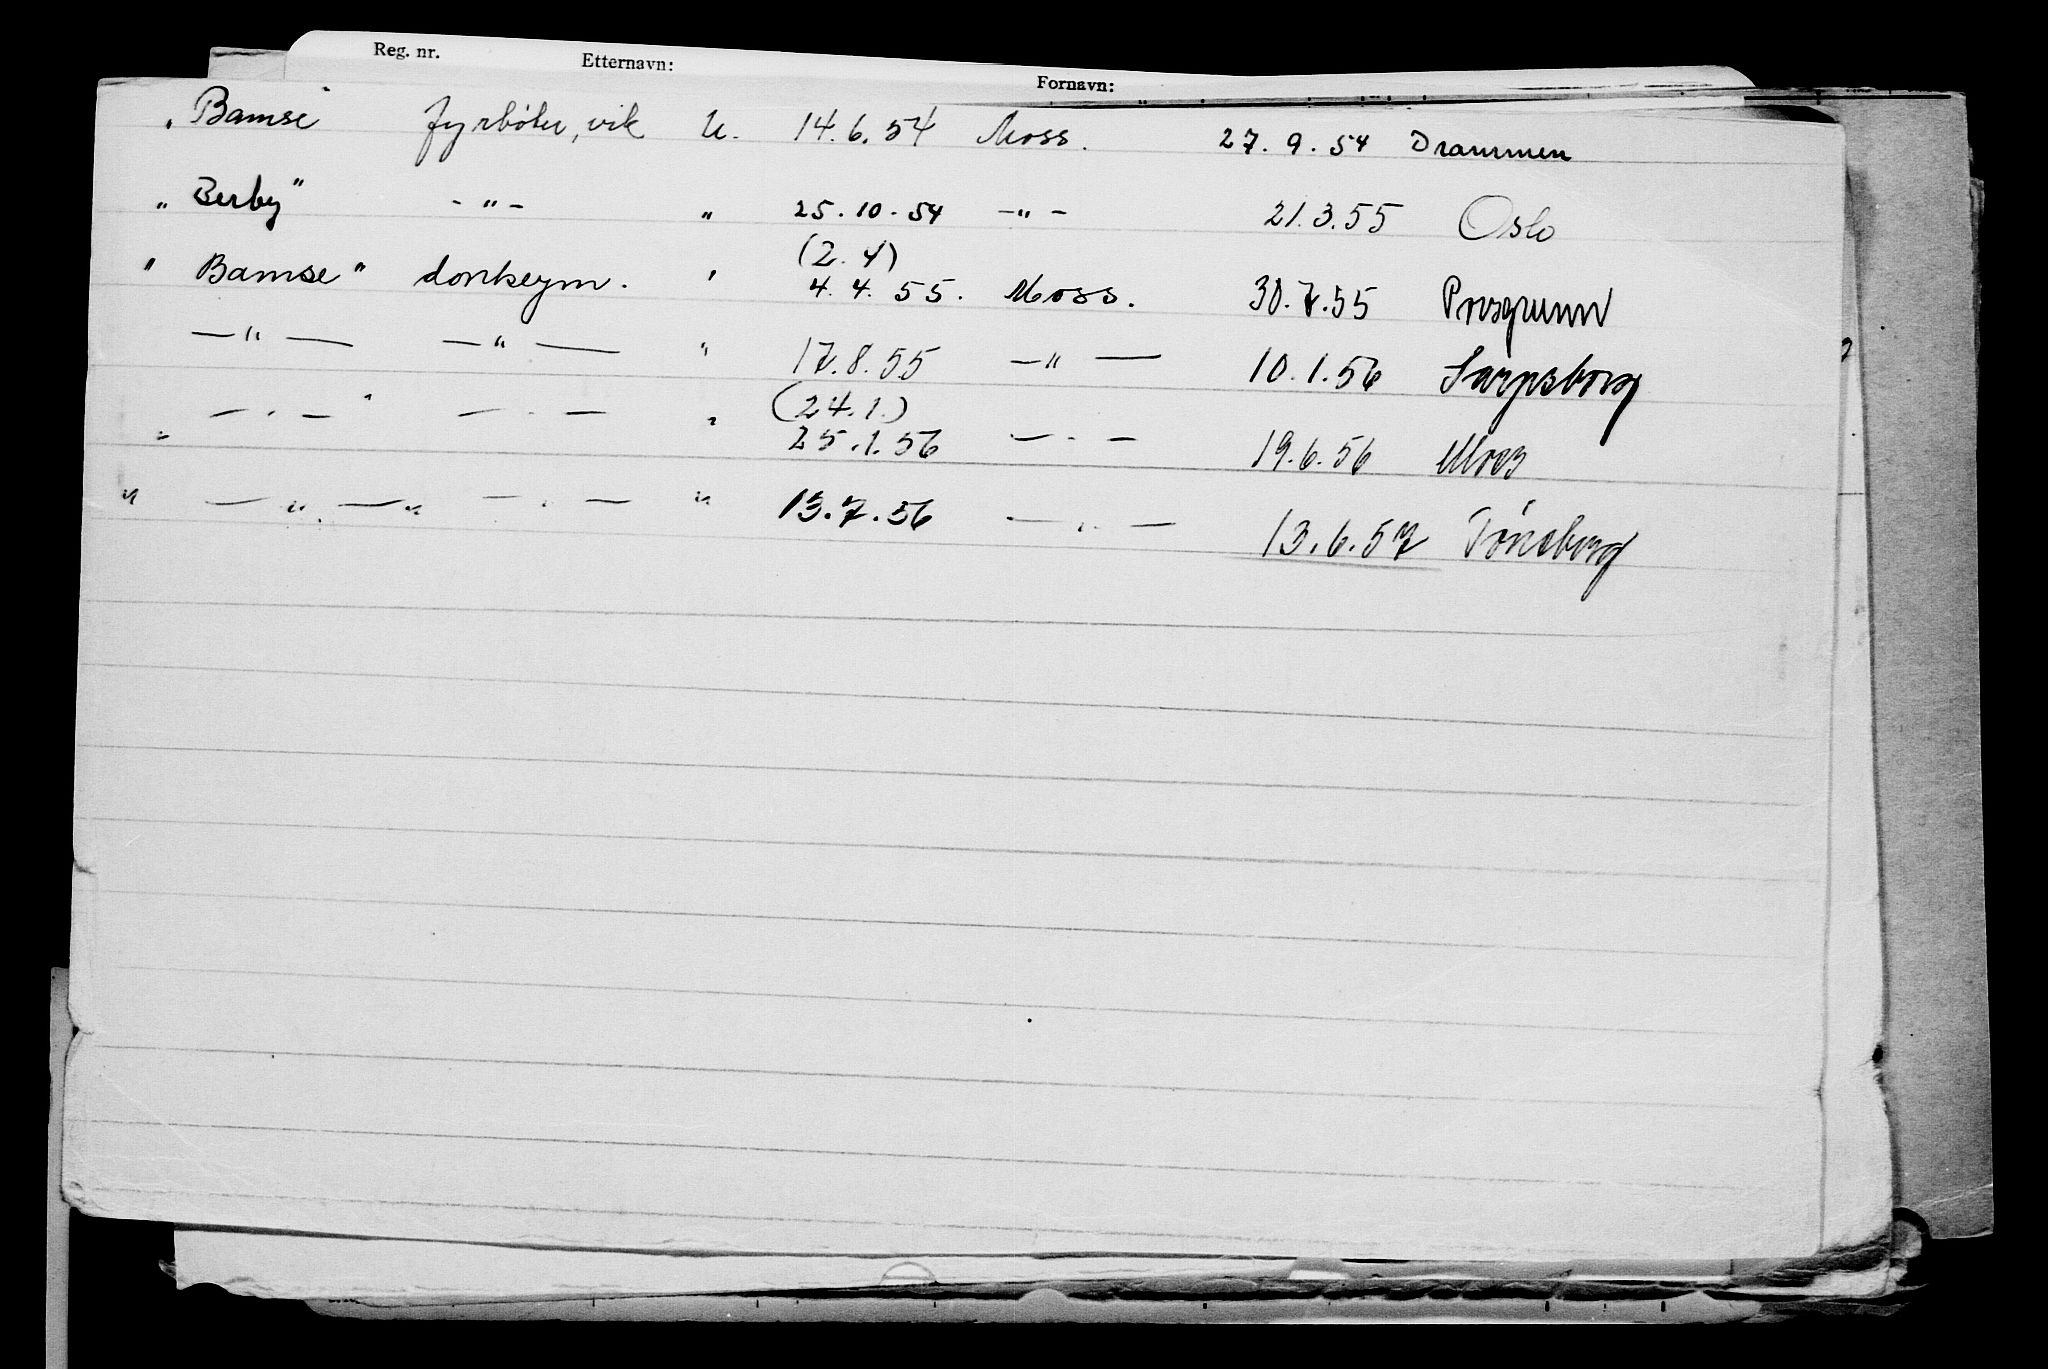 Reg. nr. Etternavn: Fornavn:
„ Bamse" fyrbøter, vik U. 14.6.54 Moss. 27.9.54 Drammen
„ Berby" -"- " 25.10.54 -"- 21.3.55 Oslo
(2.4)
" Bamse" donkeym. " 4.4.55. Moss. 30.7.55 Porsgrunn
—"— —"— " 17.8.55 —"— 10.1.56 Sarpsborg
(24.1.)
" —"—" —"— " 25.1.56 —"— 19.6.56 Moss
" —"—" —"— " 13.7.56 —"— 13.6.57 Tønsberg